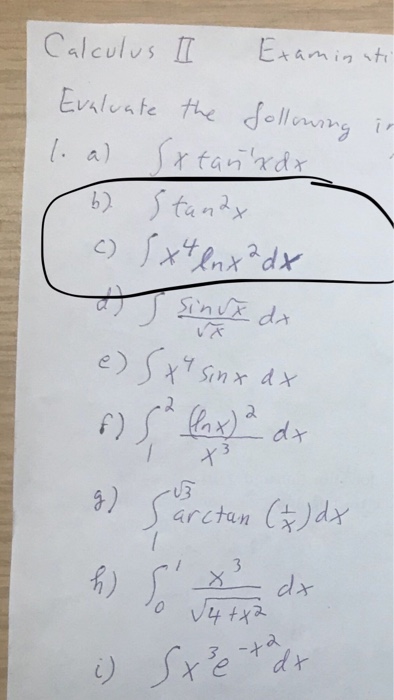 Calculus II Examinati
Evaluate the following in
1. a) ∫x tan⁻¹x dx
b) ∫tan²x
c) ∫x⁴ lnx² dx
d) ∫ sin√x/√x dx
e) ∫x⁴ sinx dx
f) ∫₁² (lnx)²/x³ dx
g) ∫₁^√3 arctan (1/x) dx
h) ∫₀¹ x³/√(4+x²) dx
i) ∫x³e^(-x²) dx